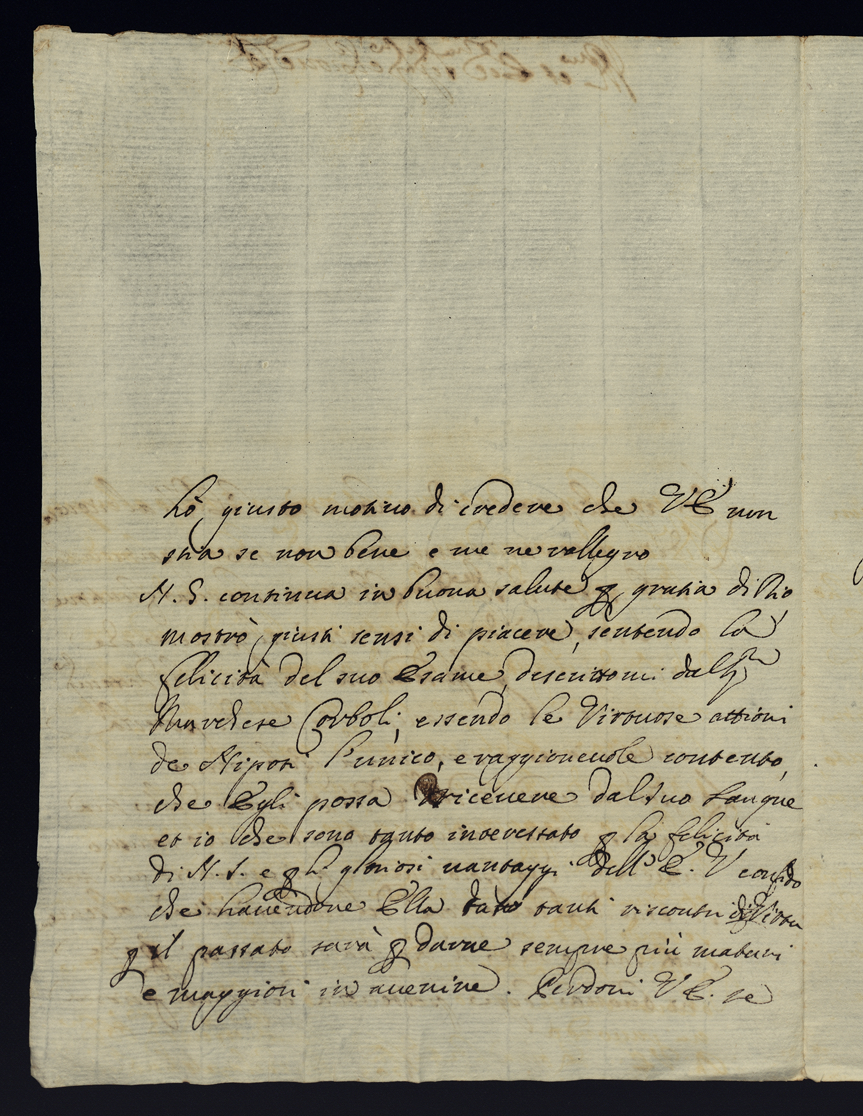 hò giusto motiuo di credere che V E non
stia se non bene e me ne rallegro
N. S. continua in buona salute p gratia di Dio,
mostrò giusti sensi di piacere, sentendo la
felicità del suo Esame, descrittomi dal Sr
Marchese Corboli, essendo le Virtuose attioni
de Nipoti l'unico, e raggioneuole contento,
che Egli possa riceuere dal suo sangue
et io che sono tanto interessato p la felicità
di N. S. e p li gloriosi uantaggi dell' E. V confido
che hauendone Ella dato tanti riscontri di Virtu
p il passato sarà p darne sempre più maturi
e maggiori in auenire. Perdoni V E. se